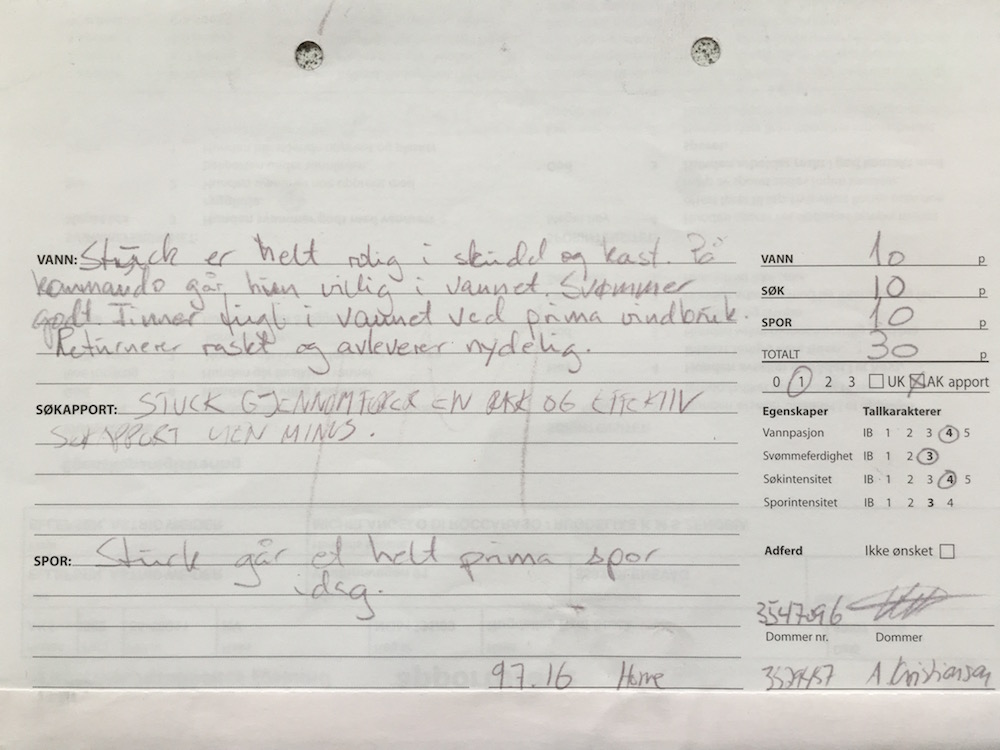 VANN: Stuck er helt rolig i skudd og kast. På
kommando går hun villig i vannet. Svømmer
godt. Finner fugl i vannet ved prima vindbruk.
Returnerer raskt og avleverer nydelig.
SØKAPPORT: STUCK GJENNOMFØRER EN OG EFFEKTIV
SØKAPPORT UTEN MINUS.
SPOR: Stuck går et helt prima spor
idag.
9.7.16
VANN 10 p
SØK 10 p
SPOR 10 p
TOTALT 30 p
0 1 2 3 UK AK apport
Egenskaper Tallkarakterer
Vannpasjon IB 1 2 3 4 5
Svømmeferdighet IB 1 2 3
Søkintensitet IB 1 2 3 4 5
Sporintensitet IB 1 2 3 4
Adferd Ikke ønsket
3547096
Dommer nr. Dommer
A Kristiansen